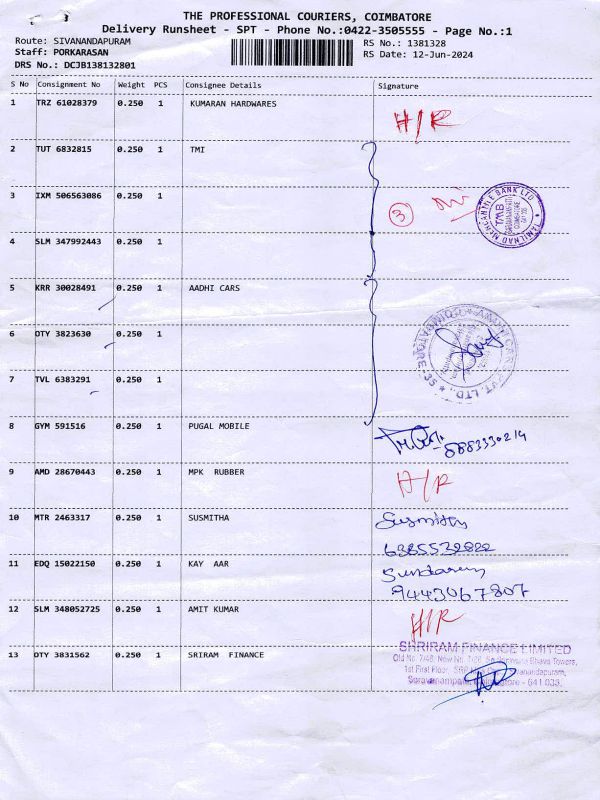 THE PROFESSIONAL COURIERS, COIMBATORE
Delivery Runsheet - SPT - Phone No.:0422-3505555 - Page No.:1
Route: SIVANANDAPURAM
Staff: PORKARASAN
DRS No.: DCJB138132801
RS No.: 1381328
RS Date: 12-Jun-2024
S No Consignment No Weight PCS Consignee Details Signature
1 TRZ 61028379 0.250 1 KUMARAN HARDWARES H/R
2 TUT 6832815 0.250 1 TMI
3 IXM 506563086 0.250 1 3
TAMILNAD MERCANTILE BANK LTD
TMB
4 SLM 347992443 0.250 1
5 KRR 30028491 0.250 1 AADHI CARS
6 OTY 3823630 0.250 1
7 TVL 6383291 0.250 1
8 GYM 591516 0.250 1 PUGAL MOBILE
9 AMD 28670443 0.250 1 MPK RUBBER H/R
10 MTR 2463317 0.250 1 SUSMITHA Susmitha
11 EDQ 15022150 0.250 1 KAY AAR Sundaram
9443067807
12 SLM 348052725 0.250 1 AMIT KUMAR H/R
13 OTY 3831562 0.250 1 SRIRAM FINANCE SHRIRAM FINANCE LIMITED
1st First Floor,
641 035.